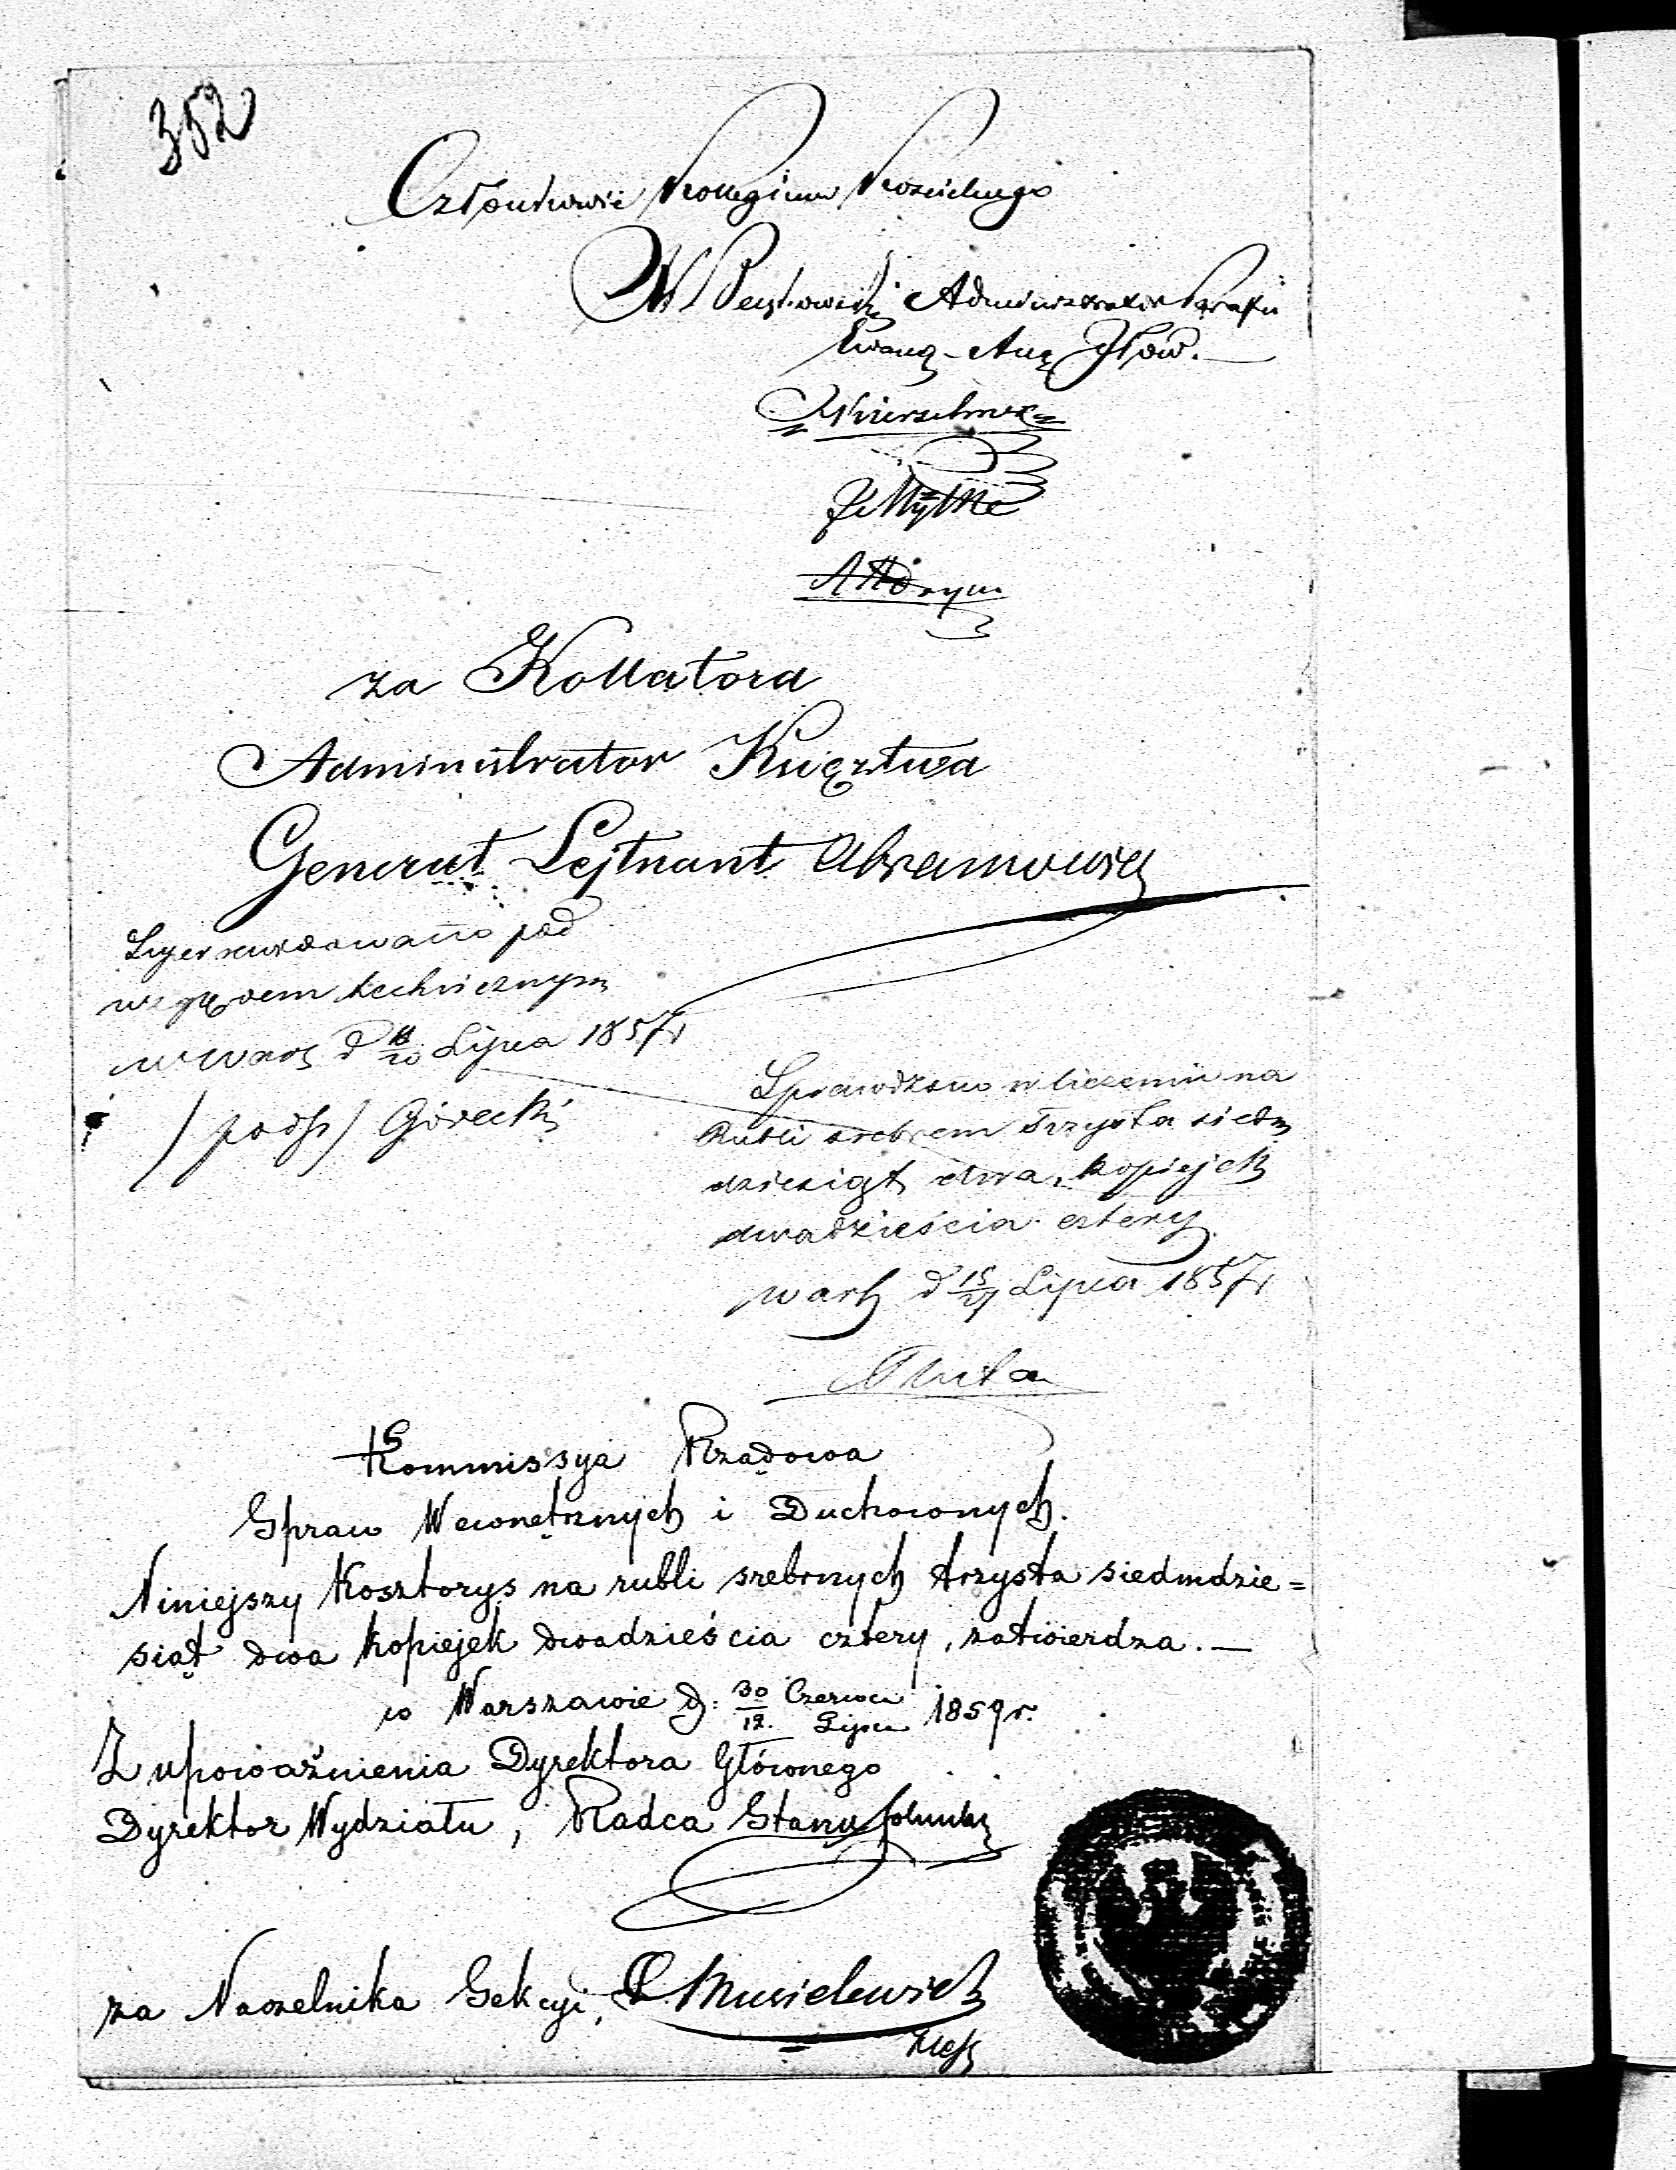 352
Członkowie Kollegium Kościelnego
Administrator Parafii
Ewang-Aug Iłow.
za Kollatora
Administrator Księztwa
Generał Lejtnant Abramowicz
Superrewidowano pod
względem technicznym
w Warsz d Lipca 1857 r
/podp/ Górecki
Sprawdzono w liczeniu na
Rubli srebrem trzysta siedm
dziesiąt dwa, kopiejek
dwadzieścia cztery
Warsz d 15/27 Lipca 1857 r
Kommissya Rządowa
Spraw Wewnętrznych i Duchownych.
Niniejszy Kosztorys na rubli srebrnych trzysta siedmdzie=
siąt dwa kopiejek dwadzieścia cztery, zatwierdza.—
w Warszawie d: 30/12. Czerwca/Lipca 1859 r.
Z upoważnienia Dyrektora Głównego
Dyrektor Wydziału, Radca Stanu
za Naczelnika Sekcyi,